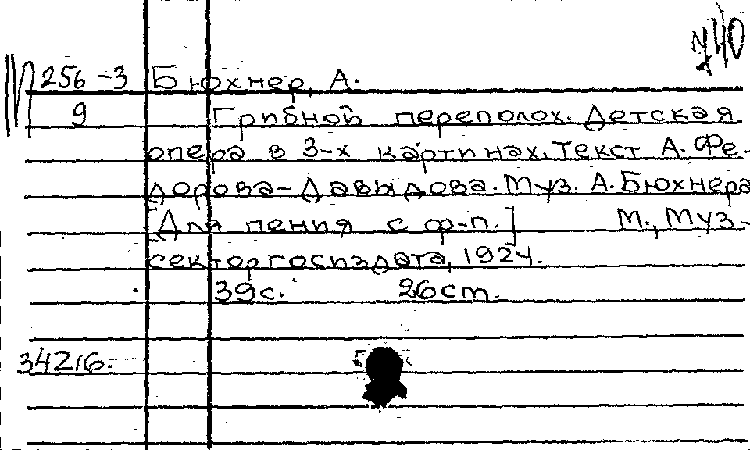 256-3 Бюхнер, А.
9 Грибной переполох. Детская
опера в 3-х картинах. Текст А. Фе-
дорова-Давыдова. Муз. А. Бюхнера
[Для пения с ф-п.] М., Муз.
сектор госиздата, 1924.
39 с. 26 см.
34216.